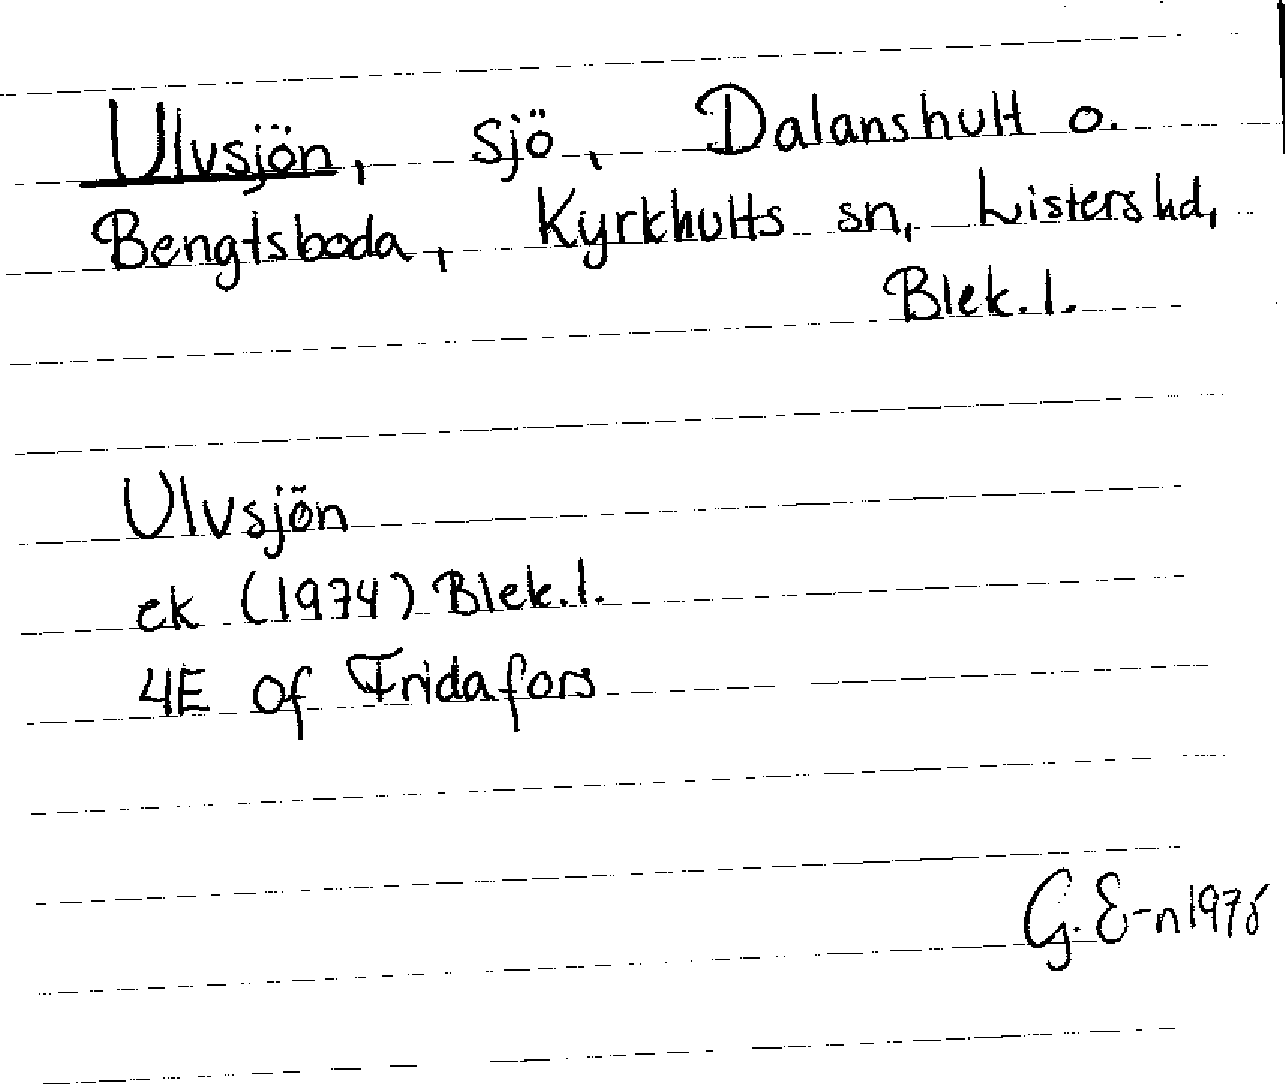 Ulvsjön, sjö, Dalanshult o.
Bengtsboda, Kyrkhults sn, Listers hd,
Blek. l.
Ulvsjön
ek (1974) Blek. l.
4E of Fridafors
G. E-n